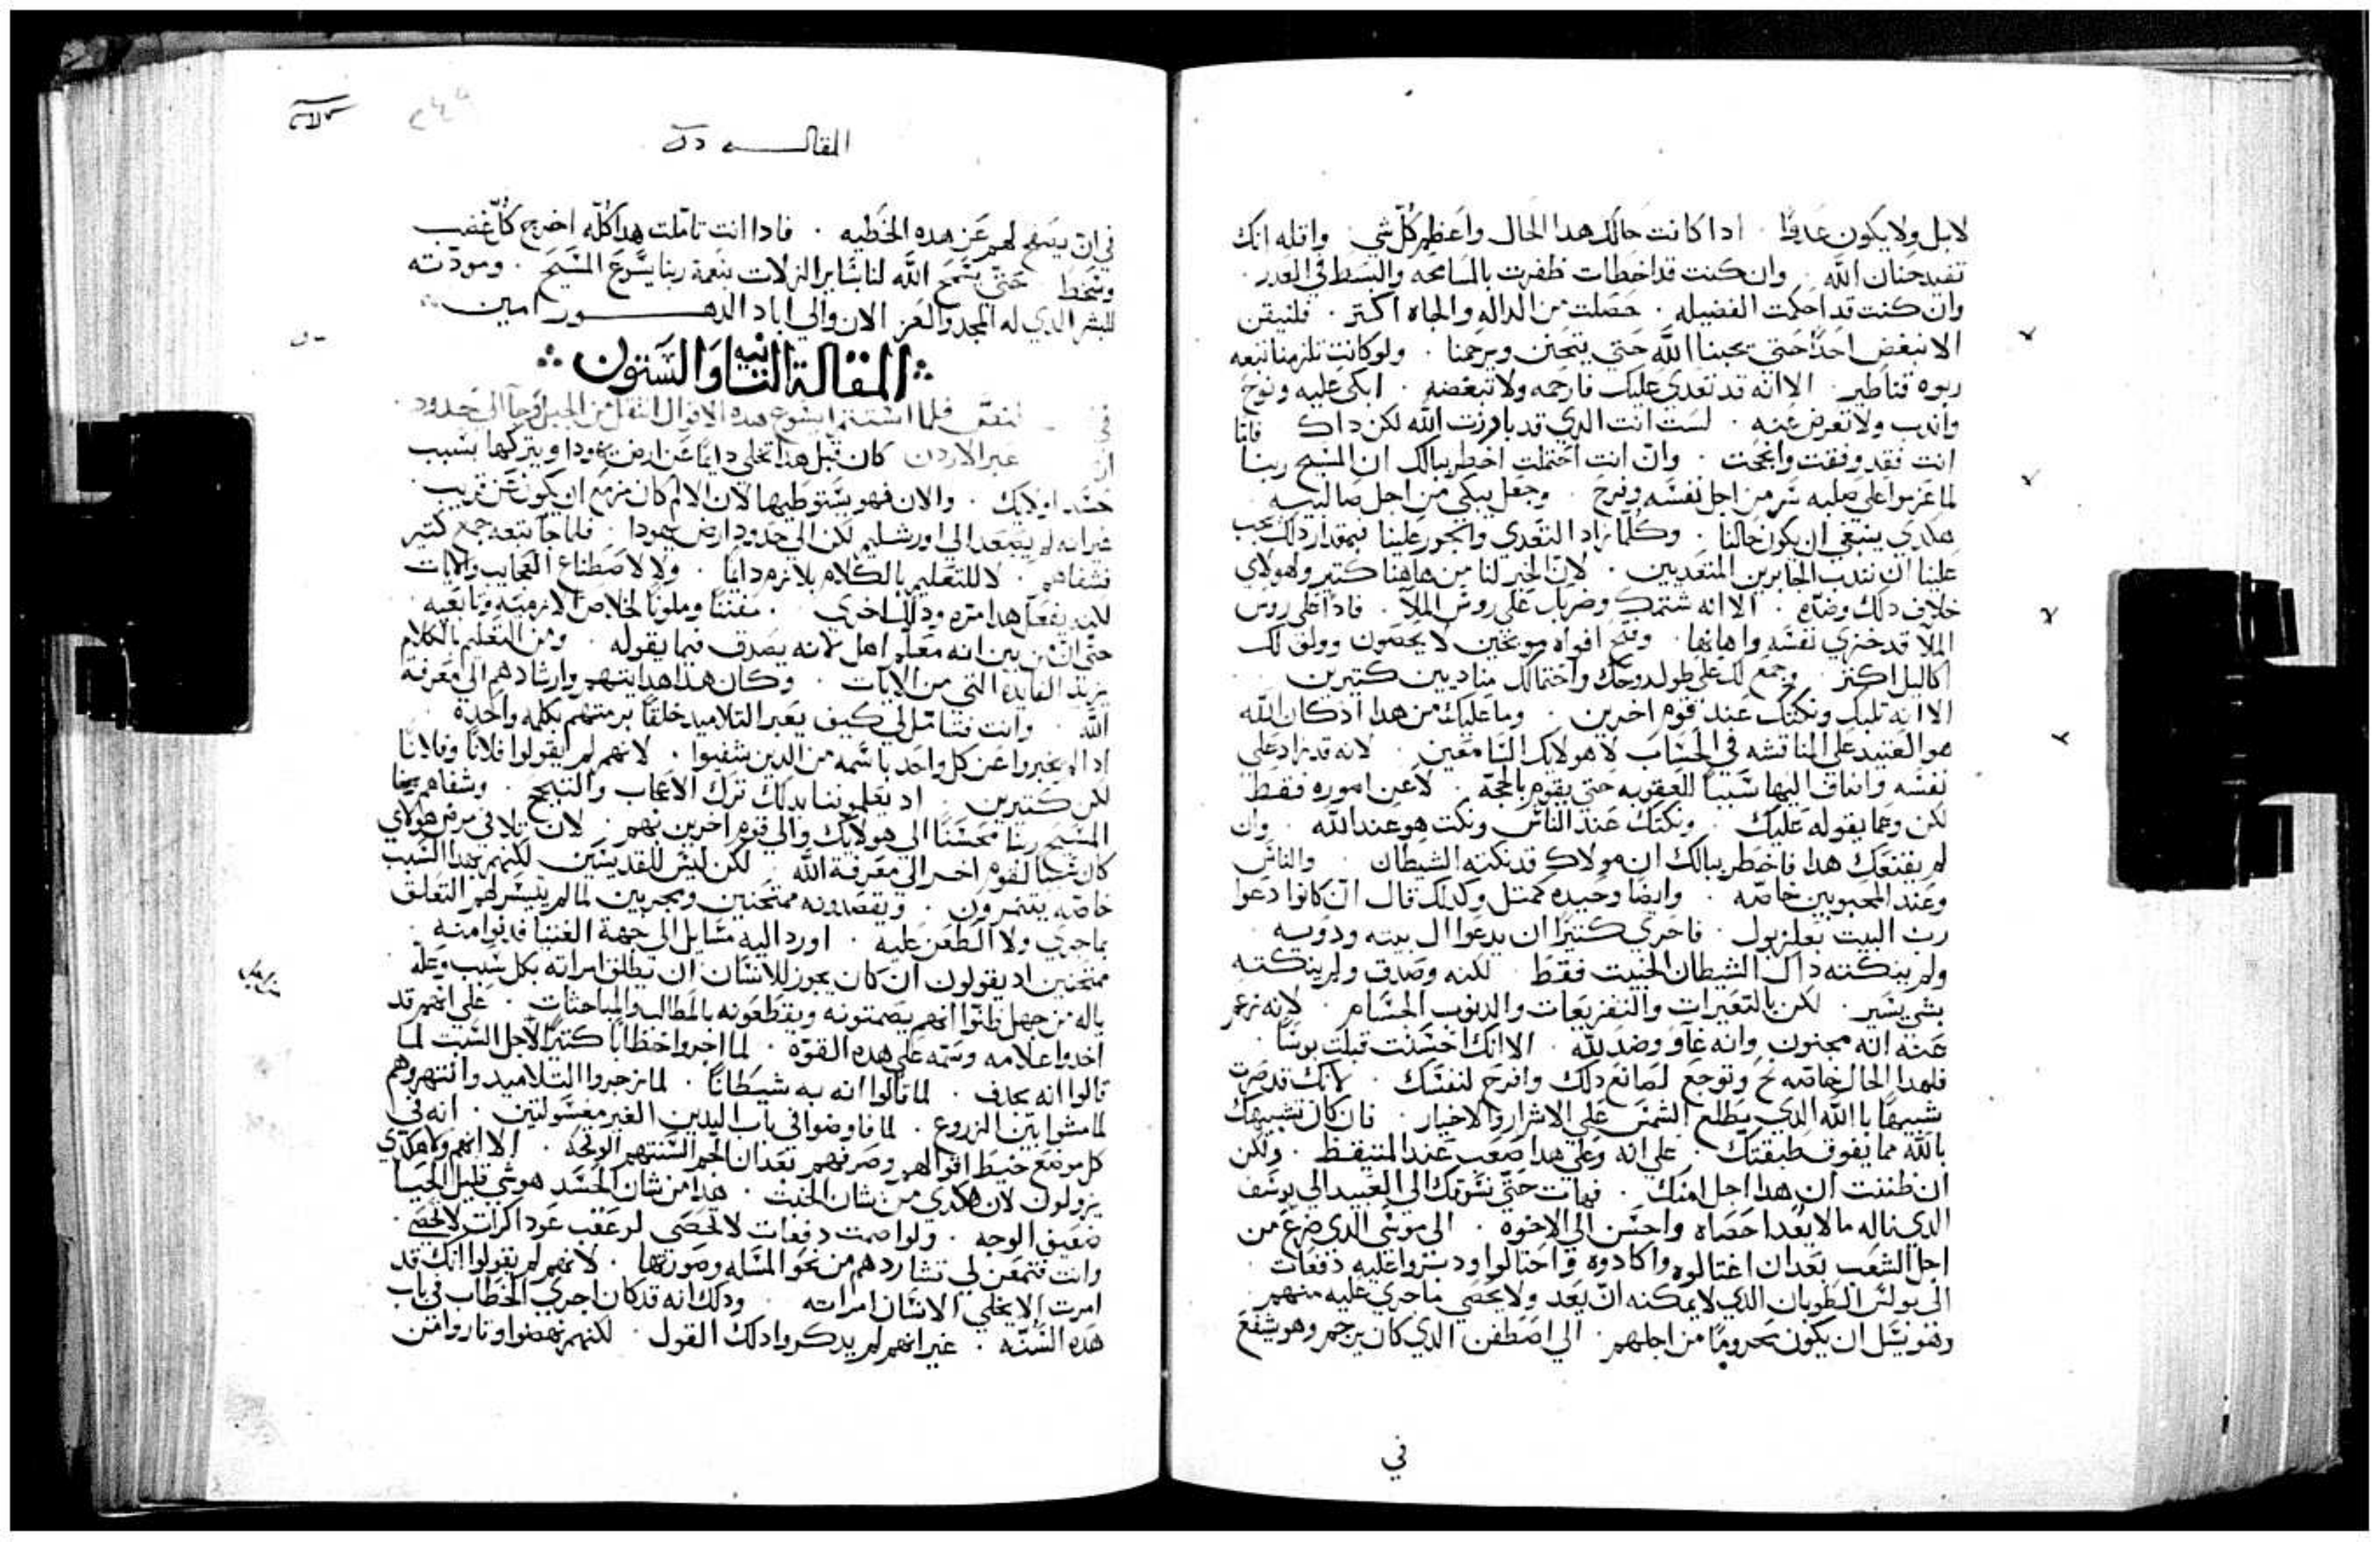 لابل ولا يكون عدوًا . ادا كانت حالك هدا الحال واعظم كل شي واقله انك
تفيد حنان الله . وان كنت قد اخطات ظفرت بالمسامحه والبسط في العدر .
وان كنت قد احكمت الفضيله . حصلت من الداله والجاه اكتر . فلنيقن
الا نبغض احدًا حتي يحبنا الله حتي يتحنن ويرحمنا . ولو كانت تلزمنا تبعه
ربوه قناطير . الا انه قد تعدي عليك فارحمه ولا تبغضه . ابكي عليه ونوح
واندب ولا تعرض عنه . لست انت الدي قد بادرت الله لكن داك فاما
انت فقد وفقت وانجحت . وان انت احتملت اخطر ببالك ان المسيح ربنا
لما عزموا علي صلبه سر من اجل نفسه وفرح . وجعل يبكي من اجل صالبيه
هكدي ينبغي ان يكون حالنا . وكلما زاد التعدي والجور علينا فبمقدار دلك يجب
علينا ان نندب الجابرين المتعديين . لان الخير لنا من هاهنا كتير ولهولاي
خلاف دلك وضده . الا انه شتمك وضربك علي روس الملا . فادا علي روس
الملا قد خزي نفسه واهانها . وفتح افواه موبخين لا يحصون وولف لك
اكاليل اكتر . وجمع لك علي طول روحك واحتمالك مناديين كتيرين
الا انه تلبك ونكتك عند قوم اخرين . وما عليك من هدا اد كان الله
هو العتيد علي المناقشه في الحساب لا هولايك السامعين . لانه قد زاد علي
نفسه واضاف اليها سببا للعقوبه حتي يقوم بالحجه . لا عن اموره فقط
لكن وعما يقوله عليك . ونكتك عند الناس ونكت هو عند الله . وان
لم يقنعك هدا فاخطر ببالك ان مولاك قد نكته الشيطان . والناس
وعند المحبوبين خاصه . وايضا وحيده كمتل وكدلك قال ان كانوا دعوا
رب البيت بعلزبول . فاحري كتيرًا ان يدعوا ال بيته ودويه .
ولم ينكته داك الشيطان الخبيت فقط . لكنه وصدق ولم ينكته
بشي يسير . لكن بالتعيرات والتقريعات والدنوب الجسام . لانه زعم
عنه انه مجنون وانه غاو وضد لله . الا انك احسنت قبلت بوسًا .
فلهدا الحال خاصه نح وتوجع لصانع دلك وافرح لنفسك . لانك قد صرت
شبيهًا بالله الدي يطلع الشمس علي الاشرار والاخيار . فان كان تشبيهك
بالله مما يفوق طبقتك . علي انه وعلي هدا صعب عند المتيقظ . ولكن
ان ظننت ان هدا اجل منك . فهات حتي نسوقك الي العبيد الي يوسف
الدي ناله ما لا يعد احصاه واحسن الي الاخوه . الي موسي الدي ضرع من
اجل الشعب بعد ان اغتالوه واكادوه واحتالوا ودسوا عليه دفعات .
الي بولس الطوبان الدي لا يمكنه ان يعد ولا يحصي ما جري عليه منهم
وهو يسل ان يكون محرومًا من اجلهم . الي اصطفن الدي كان يرجم وهو يشفع
في
المقاله
في ان يصفح لهم عن هده الخطيه . فادا انت تاملت هدا كله اخرج كل غضب
وسخط . حتي يسمح الله لنا بساير الزلات بنعمة ربنا يسوع المسيح . ومودته
للبشر الدي له المجد والعز الان والي اباد الدهور امين
المقالة الثانيه والستون
فلما استتم ايسوع هده الاقوال انتقل من الجبل وجا الي حدود
عبر الاردن كان قبل هدا يخلي دايما عن ارض يهودا ويتركها بسبب
حسد اولايك . والان فهو يستوطيها لان الالم كان مزمع ان يكون عن قريب
غير انه لم يصعد الي اورشليم لكن الي حدود ارض يهودا . فلما جا تبعه جمع كتير
فشفاهم . لا للتعليم بالكلام يلازم دايمًا . ولا لاصطناع العجايب والايات
لكنه يفعل هدا مره ودلك اخري . مفننا وملونًا لخلاص لازميه وتابعيه
حتي ان من بين انه معلم اهل لانه يصدق فيما يقوله . ومن التعليم بالكلام
يزيد الفايده التي من الايات . وكان هدا هدايتهم وارشادهم الي معرفة
الله . وانت فتامل لي كيف يعبر التلاميد خلقًا برمتهم بكلمه واحدة
اد لم يخبروا عن كل واحد باسمه من الدين شفيوا . لانهم لم يقولوا فلانًا وفلانًا
لكن كتيرين . اد يعلموننا بدلك ترك الاعجاب والتبجح . وشفاهم
المسيح ربنا محسنًا الي هولايك والي قوم اخرين بهم . لان تلافي مرض هولاي
كان سببًا لقوم اخر الي معرفة الله . لكن ليس للقديسين لكنهم بهدا السبب
خاصه يتنمرون . ويقصدونه ممتحنين ومجربين لما لم يتيسر لهم التعلق
بما جري ولا الطعن عليه . اورد اليه مسايل الي جهة الفتيا فدنوا منه
ممتحنين اد يقولون ان كان يجوز للانسان ان يطلق امراته بكل سبب وعله
ياله من جهل ظنوا انهم يصمتونه ويقطعونه بالمطالب والمباحثات . علي انهم قد
اخدوا علامه وسمه علي هده القوه . لما اجروا خطابًا كتيرًا لاجل السبت لما
قالوا انه يجدف . لما قالوا انه به شيطانًا . لما زجروا التلاميد وانتهروهم
لما مشوا بين الزروع . لما فاوضوا في باب اليدين الغير مغسولتين . انه في
كل موضع خيط اقوالهم وصرفهم بعد ان الجم السنتهم الوقحه . الا انهم ولا هكدي
يزولون لان هكدي من شان الخبث . هدا من شان الحسد هو شي قليل الحيا
ضفيق الوجه . ولو اصمت دفعات لا تحصي لرعقب عود اكرات لا تحصي .
وانت فتمعن لي تشاردهم من نحو المسله وصورتها . لانهم لم يقولوا انك قد
امرت الا يخلي الانسان امراته . ودلك انه قد كان اجري الخطاب في باب
هده السنه . غير انهم لم يدكروا دلك القول . لكنهم نهضوا وثاروا من